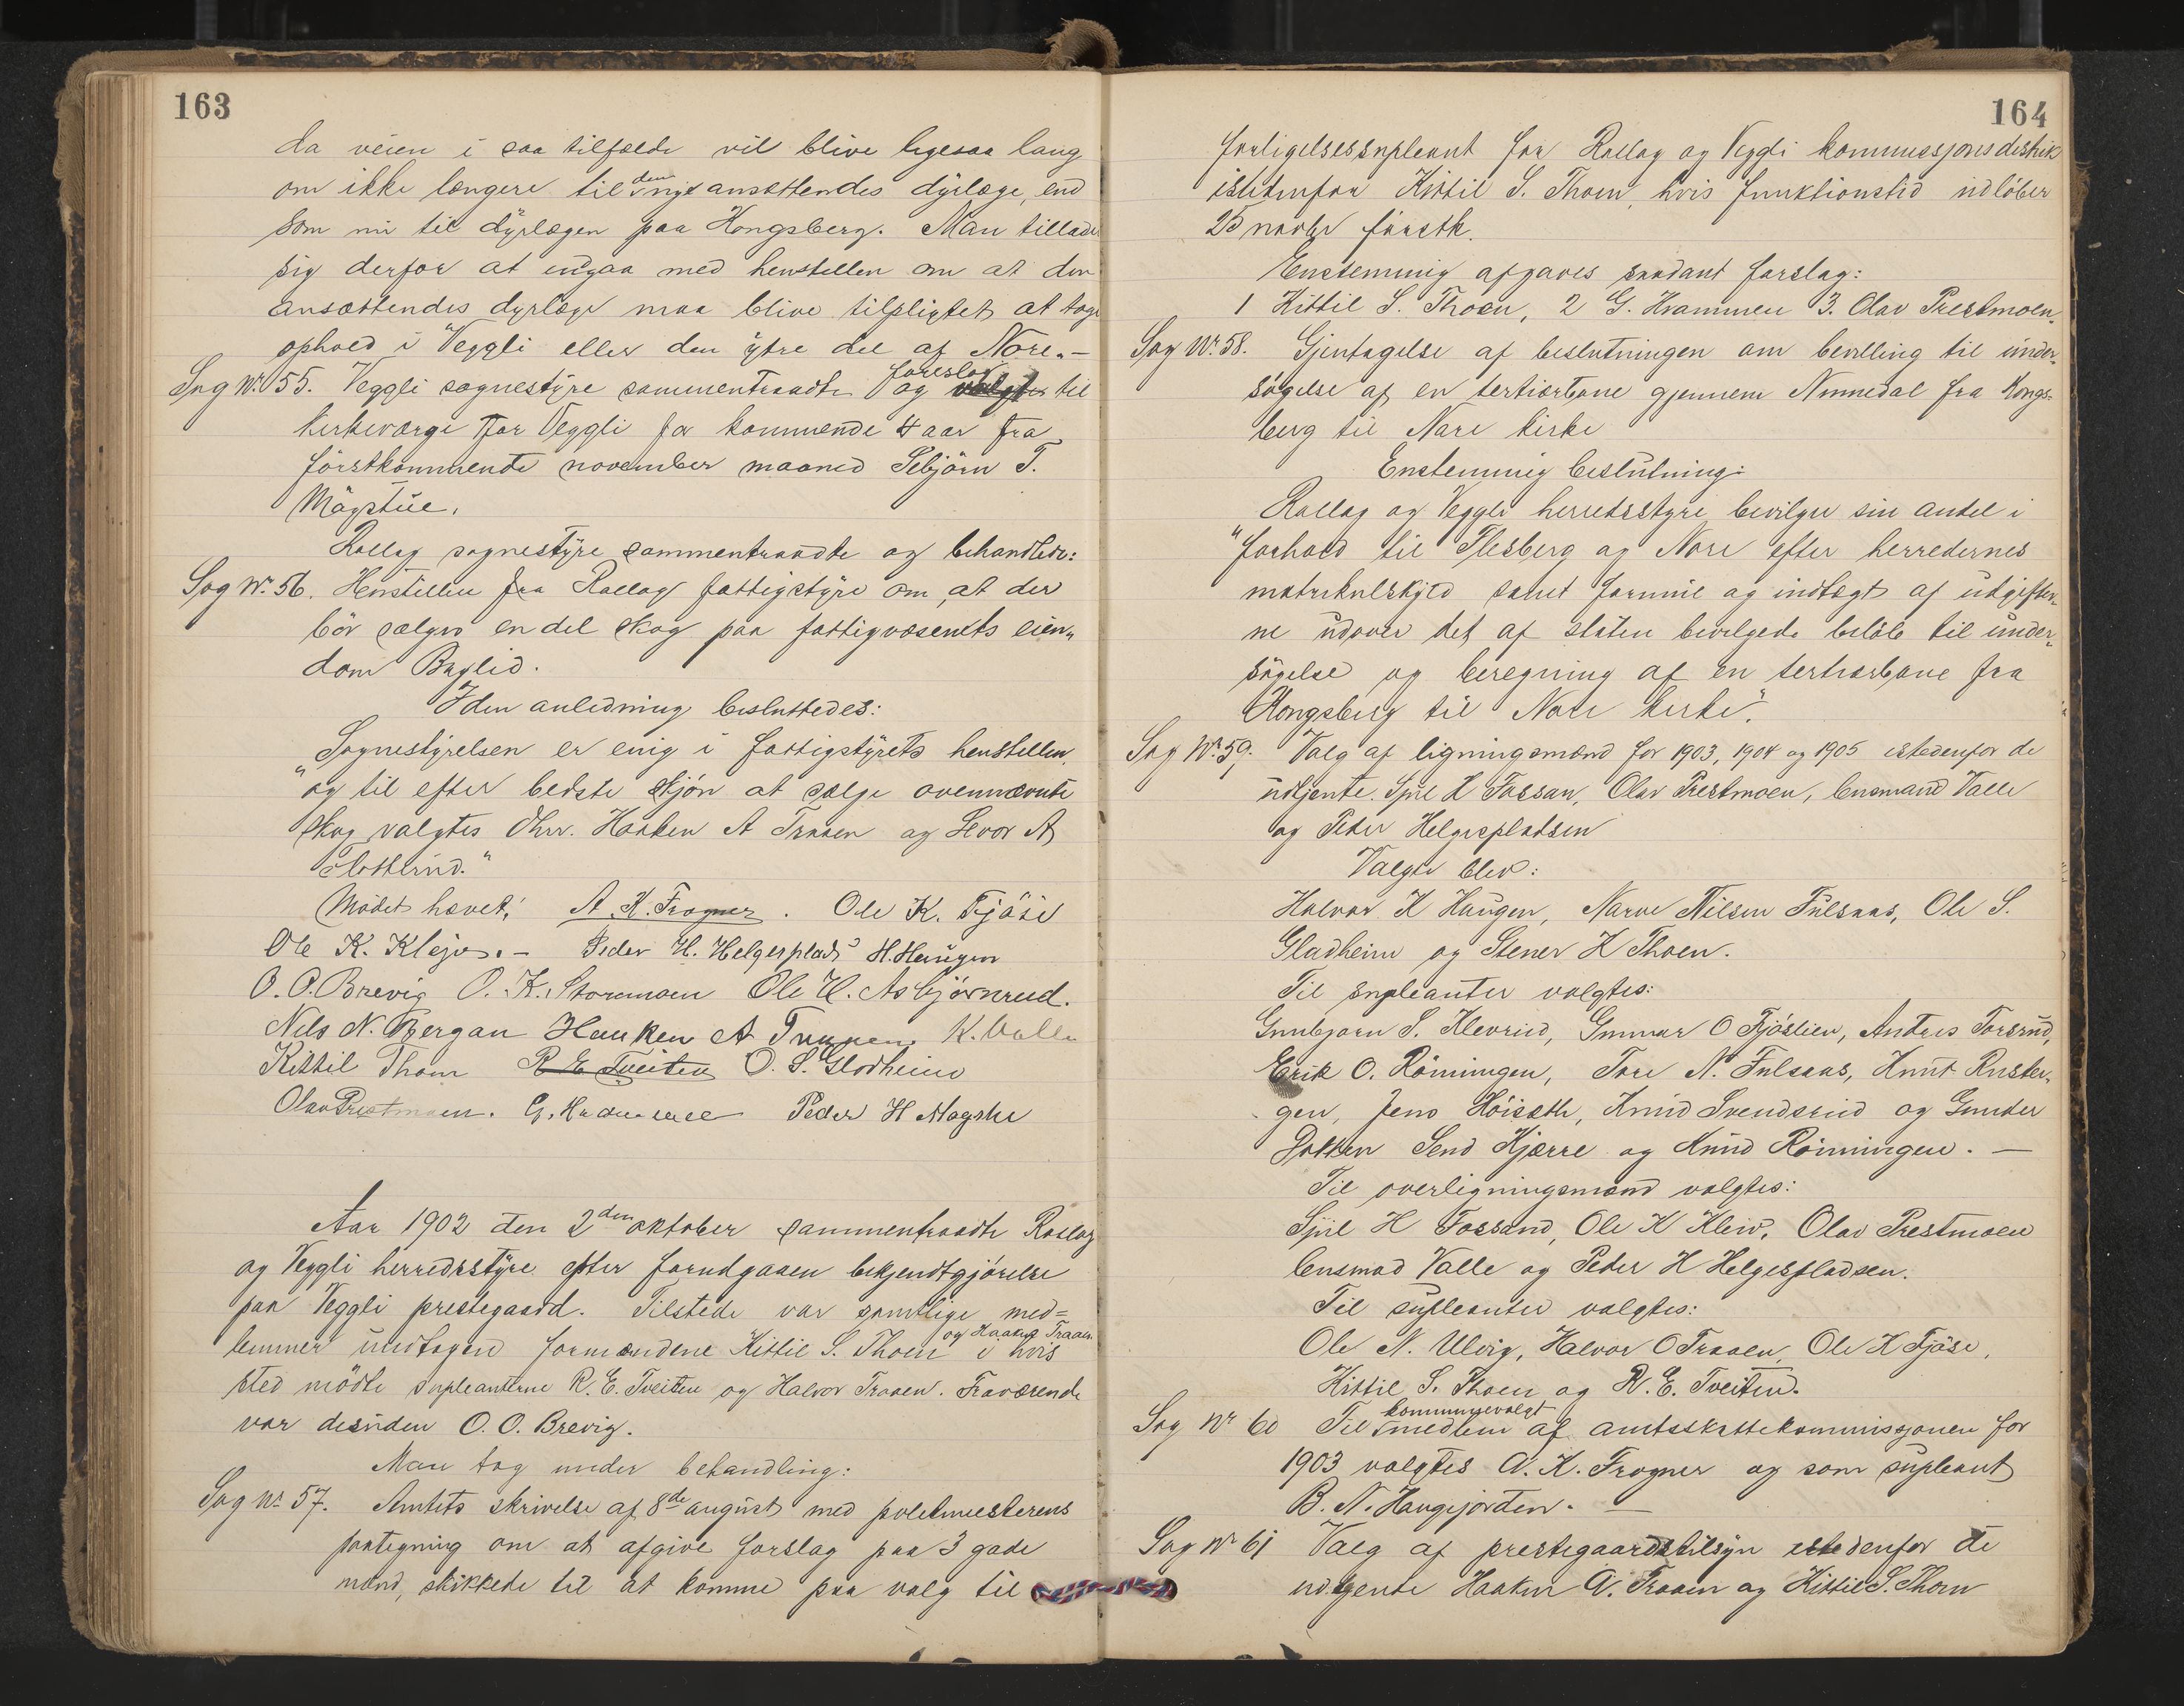 163
da veien i saa tilfælde vil blive ligesaa lang
om ikke længere til den nye ansættendes dyrlæge, end
som nu til dyrlægen paa Kongsberg. Man tillader
sig derfor at indgaa med henstillen om at den
ansættendes dyrlæge maa blive tilpligtet at tage
ophold i Veggli eller den ytre del af Nore.-
Sag Nr. 55. Veggli sognestyre sammentraadte og foreslog til
kirkeværge for Veggli for kommende 4 aar fra
förstkommende november maaned Sebjörn T.
Mögstue.
Rollag sognestyre sammentraadte og behandlede:
Sag Nr. 56. Henstillen fra Rollag fattigstyre om, at der
bör sælges en del skog paa fattigvæsenets eien„
dom Baglid.
I den anledning besluttedes:
Sognestyrelsen er enig i fattigstyrets henstillen,
„og til efter bedste skjön at sælge ovennævnte
skog valgtes Dhrr. Haaken A Traaen og Levor A
Slotterud."
Mödet hævet. A. K. Frogner. Ole K. Fjöse
Ole K. Klejv.- Peder H. Helgesplads H. Haugen
O. O. Brevig O. K. Stormoen Ole H. Asbjørnrud.
Nils N. Bergan Haaken A Traaen K. Valle
Kittil Thoen R E Tveiten O. S. Gladheim
Olav Prestmoen. G. Hvammen Peder H Mogstu
Aar 1902 den 2den oktober sammentraadte Rollag
og Veggli herredsstyre efter forudgaaen bekjendtgjörelse
paa Veggli prestegaard. Tilstede var samtlige med=
lemmer undtagen formændene Kittil S. Thoen og Haaken Traaen i hvis
sted mödte supleanterne R. E. Tveiten og Halvor Traaen. Fraværende
var desuden O. O. Brevig.
Man tog under behandling:
Sag Nr 57. Amtets skrivelse af 8de august med politmesterens
paategning om at afgive forslag paa 3 gode
mænd, skikkede til at komme paa valg til
164
forligelsessupleant for Rollag og Veggli kommissjonsdistrik
istedenfor Kittil S. Thoen, hvis funktionstid udlöber
25 novbr förstk.
Enstemmig afgaves saadant forslag:
1 Kittil S. Thoen, 2 G. Hvammen 3. Olav Prestmoen.
Sag Nr. 58. Gjentagelse af beslutningen om bevilling til under„
søgelse af en tertiærbane gjennem Nummedal fra Kongs=
berg til Nore kirke
Enstemmig beslutning:
Rollag og Veggli herredsstyre bevilger sin andel i
"forhold til Flesberg og Nore efter herredernes
matrikulskyld samt formue og indtægt af udgifter„
ne udover det af staten bevilgede belöb til under„
sögelse og beregning af en tertiærbane fra
Kongsberg til Nore kirke".
Sag Nr. 59. Valg af ligningsmænd for 1903, 1904 og 1905 istedenfor de
udtjente. Spil H Fossan, Olav Prestmoen, lensmand Valle
og Peder Helgespladsen
Valgte blev:
Halvor H Haugen, Narve Nilsen Fulsaas, Ole S.
Gladheim og Stener H Thoen.
Til supleanter valgtes:
Gunbjørn S. Klevrud, Gunnar O Fjöslien, Anders Forsrud,
Erik O. Rönningen, Tore N. Fulsaas, Knut Ruster„
gen, Jens Höiseth, Knud Svendsrud og Gunder
Bakken Send Kjærre og Knud Rönningen. —
Til overligningsmænd valgtes:
Spil H Fossand, Ole K Kleiv, Olav Prestmoen
lensmad Valle og Peder H Helgespladsen.
Til supleanter valgtes:
Ole N. Ulvig, Halvor O Traaen, Ole K Fjöse,
Kittil S. Thoen og R. E. Tveiten.
Sag Nr 60 Til kommunevalgt medlem af amtsskattekommissjonen for
1903 valgtes A. K. Frogner og som supleant
B. N. Haugejorden. —
Sag Nr 61 Valg af prestegaardstilsyn istedenfor de
udtjente Haaken A. Traaen og Kittil S. Thoen